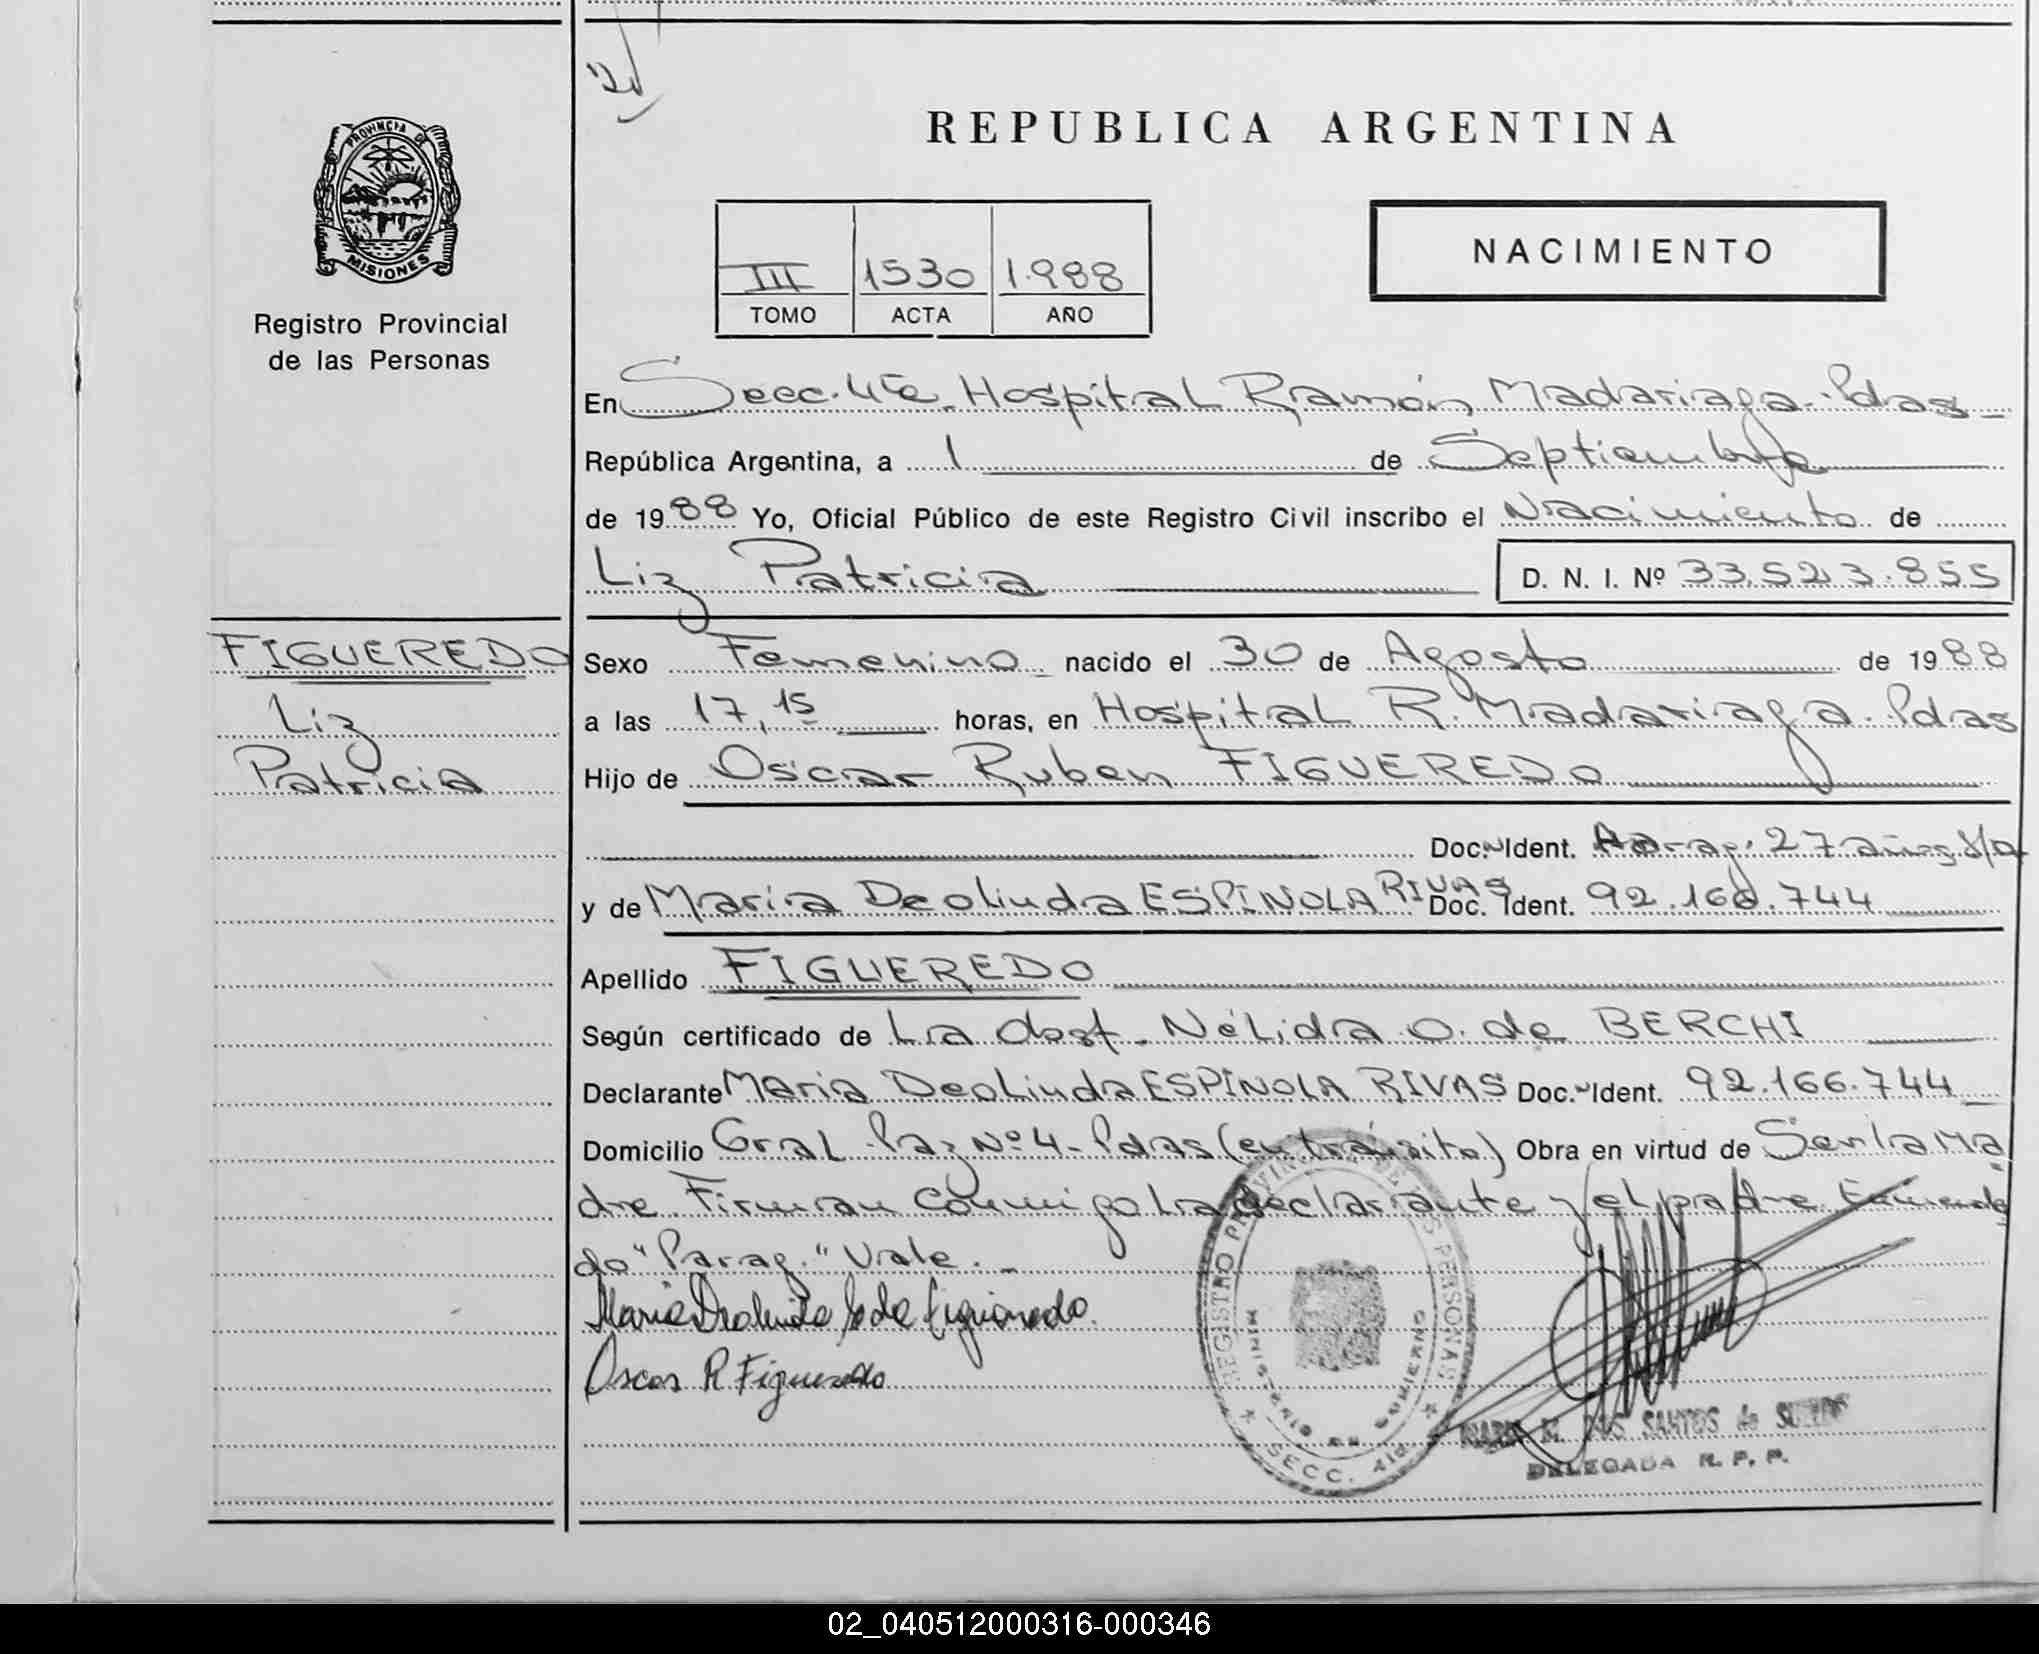 REPUBLICA ARGENTINA
PROVINCIA DE
MISIONES
Registro Provincial
de las Personas
III 1530 1.988
TOMO ACTA AÑO
NACIMIENTO
En Secc. 4ta. Hospital Ramón Madariaga. Pdas
República Argentina, a 1 de Septiembre
de 1988 Yo, Oficial Público de este Registro Civil inscribo el Nacimiento de
Liz Patricia D. N. I. Nº 33.523.855
FIGUEREDO
Liz
Patricia
Sexo Femenino nacido el 30 de Agosto de 1988
a las 17,15 horas, en Hospital R. Madariaga. Pdas
Hijo de Oscar Ruben FIGUEREDO
Doc. Ident. 27 años
y de Maria Deolinda ESPINOLA RIVAS Doc. Ident. 92.166.744
Apellido FIGUEREDO
Según certificado de La obst. Nélida O. de BERCHI
Declarante Maria Deolinda ESPINOLA RIVAS Doc. Ident. 92.166.744
Domicilio Gral. Paz Nº 4 - Pdas (en tránsito) Obra en virtud de Ser la Ma
dre. Firman conmigo la declarante y el padre. Enmenda
do "Parag." Vale.
Maria Deolinda de Figueredo
Oscar R Figueredo
REGISTRO PROVINCIAL DE LAS PERSONAS
MINISTERIO DE GOBIERNO
SECC. 4ta
M. DOS SANTOS de
DELEGADA R. P. P.
02_040512000316-000346